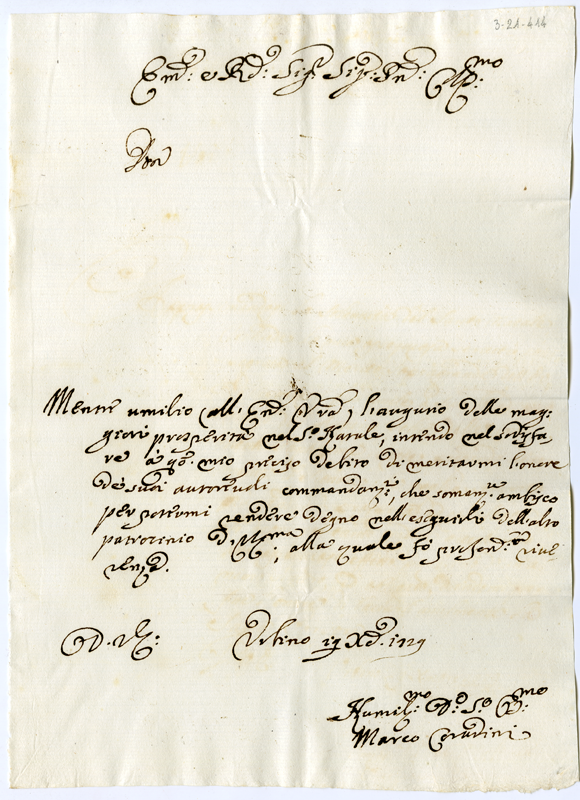 3-21-414
Em.: e R.d: Sig.r Sig.r: Pn.: Col.mo:
Mentre umilio all'Em.: Vra, l'augurio delle mag:
giori prosperità nel S.o Natale, intendo nel sodisfa
re à q.o mio preciso debito di meritarmi l'onore
de suoi autoreuoli commandam.ti, che somam.e ambisco
per potermi rendere degno nell'eseguirli dell'alto
patrocinio d. V. Em.ma, alla quale fò profond.ma riue
renza.
D. V. E.:
Urbino 17 Xb. 1729
Humil.mo D.o S.o O.mo:
Marco